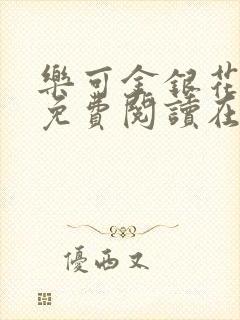 樂可金銀花
免費閱讀在
優西又